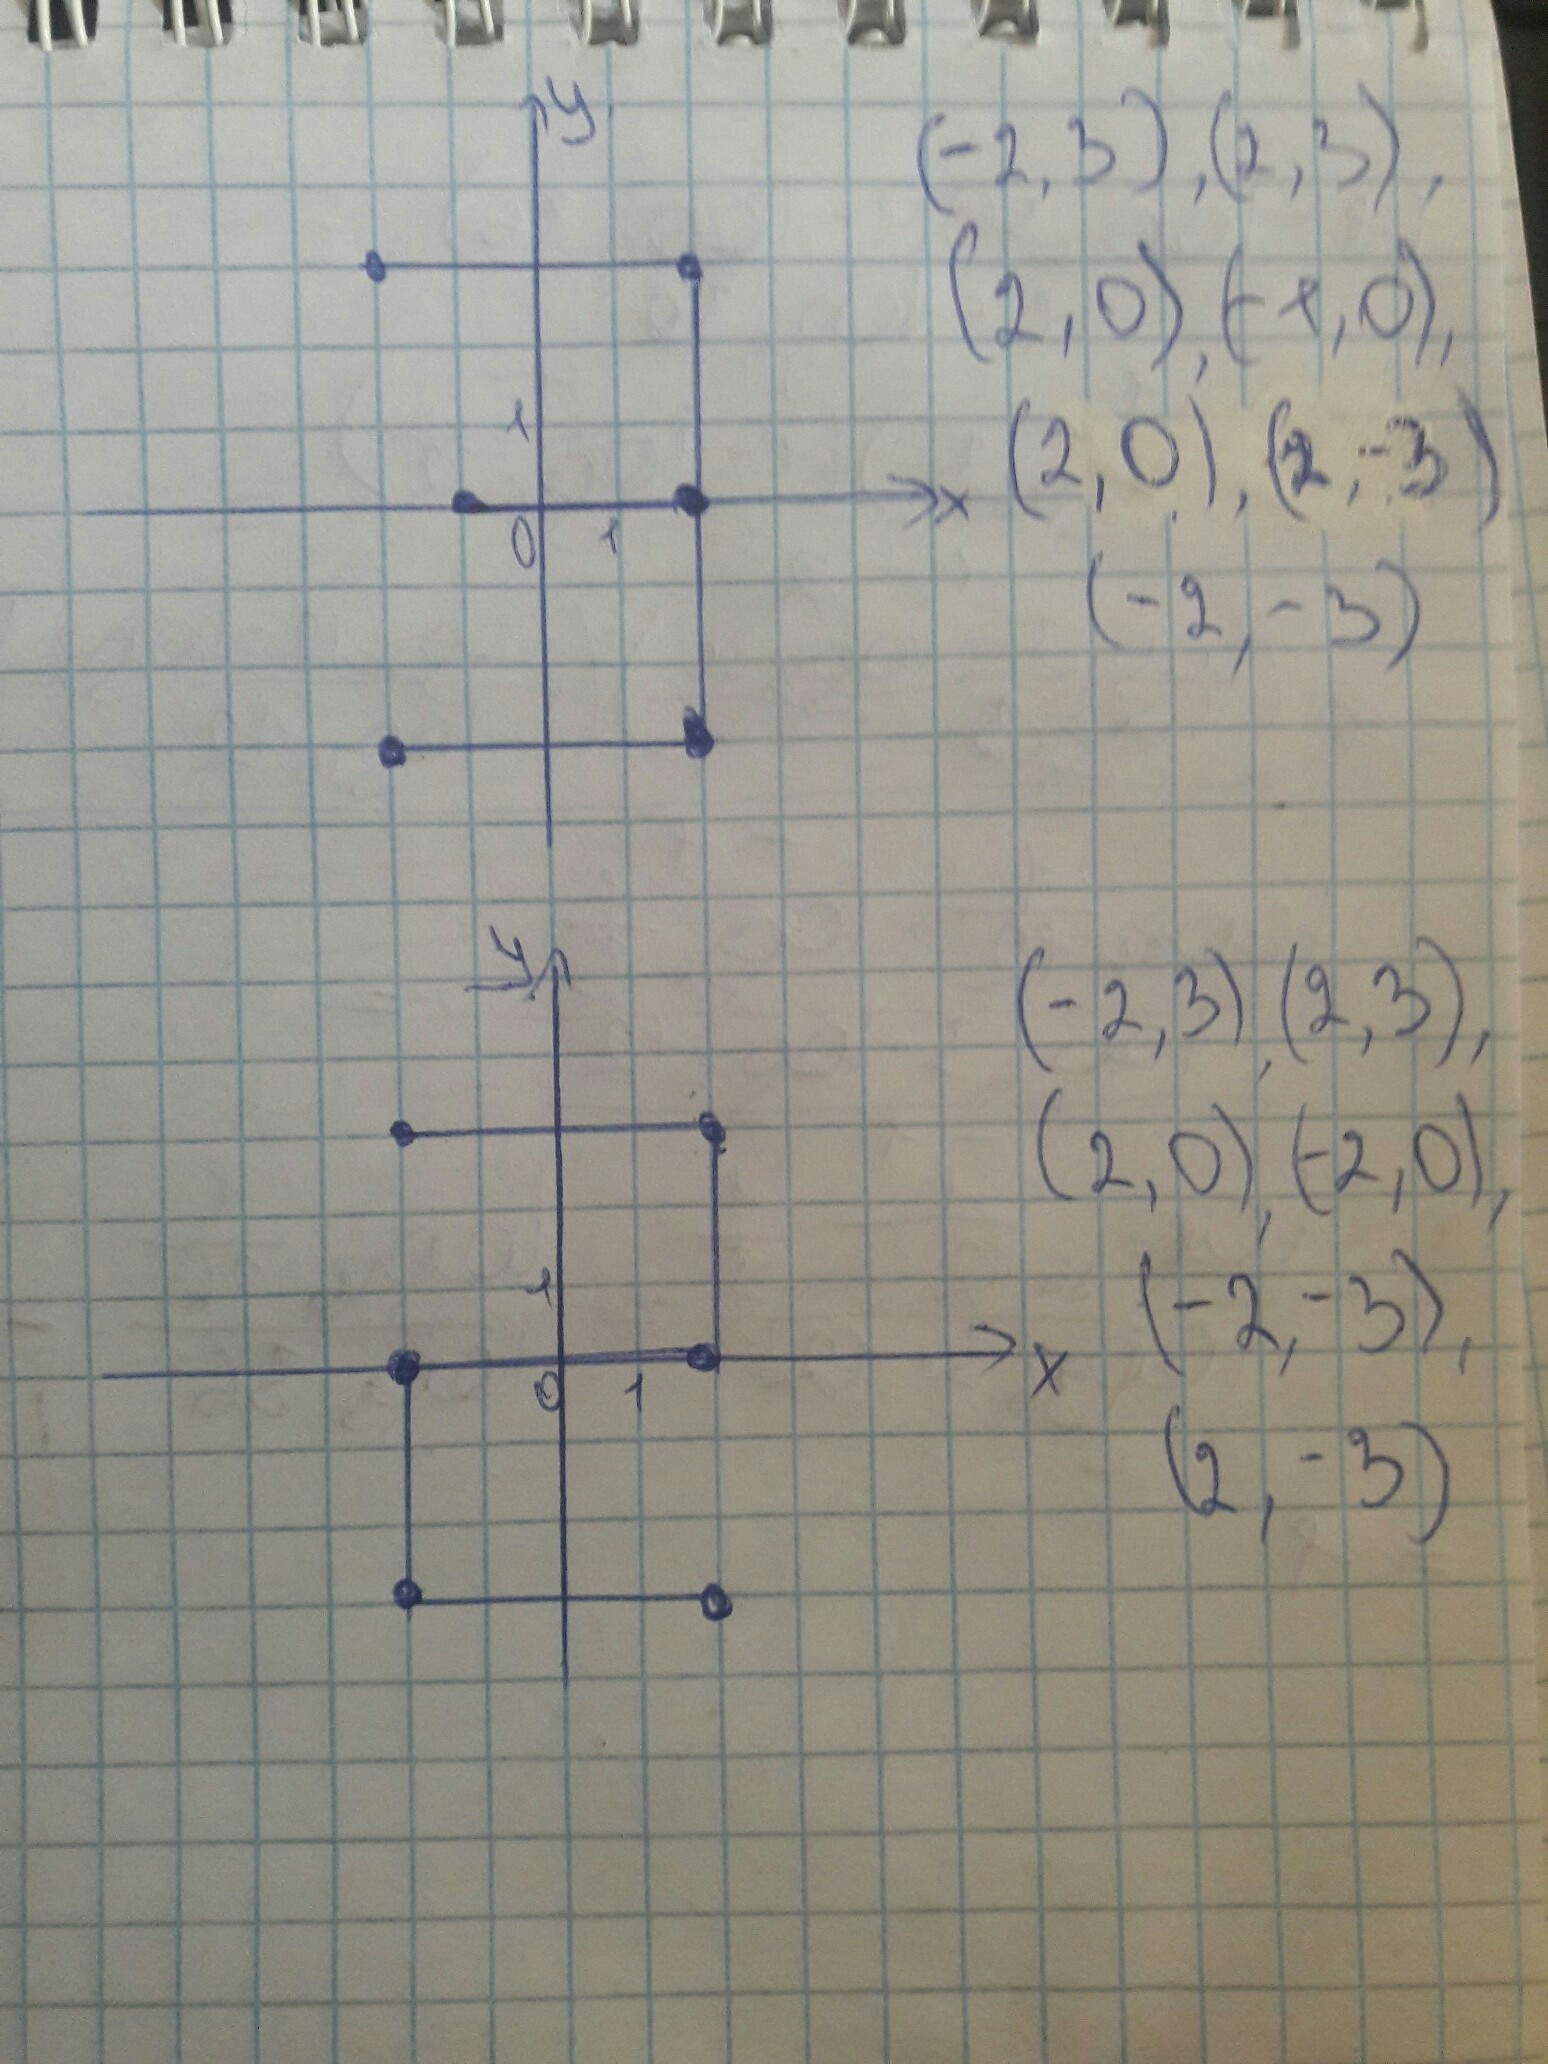 y
(-2,3),(2,3),
(2,0),(-1,0),
1
(2,0),(2,-3)
x
0 1
(-2,-3)
y
(-2,3),(2,3),
(2,0),(-2,0),
1
(-2,-3),
x
0 1
(2,-3)